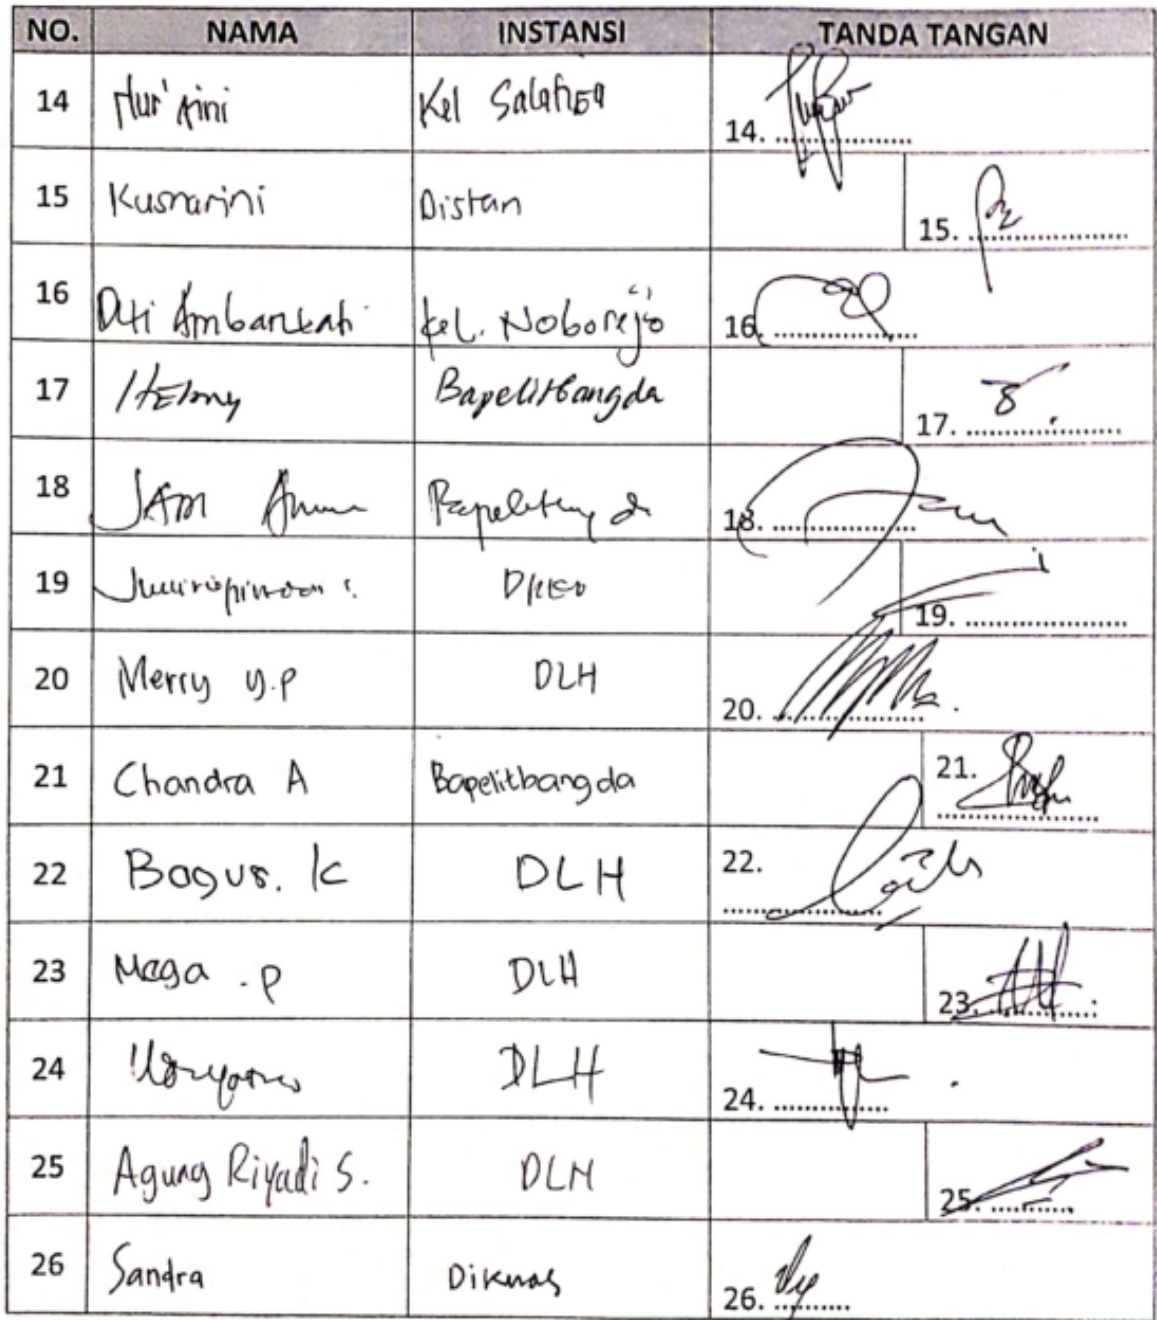 NO. NAMA INSTANSI TANDA TANGAN
14 Nur'Aini Kel Salatiga 14. ..................
15 Kusmarini Distan 15. ..................
16 Ambarwati Kel. Noborejo 16. ..................
17 HElmy Bapelitbangda 17. ..................
18 JAM 18. ..................
19 19. ..................
20 Merry y.p DLH 20. ..................
21 Chandra A Bapelitbangda 21. ..................
22 Bagus. K DLH 22. ..................
23 Mega .p DLH 23. ..................
24 DLH 24. ..................
25 Agung Riyadi S. DLH 25. ..................
26 Sandra Diknas 26. ..........